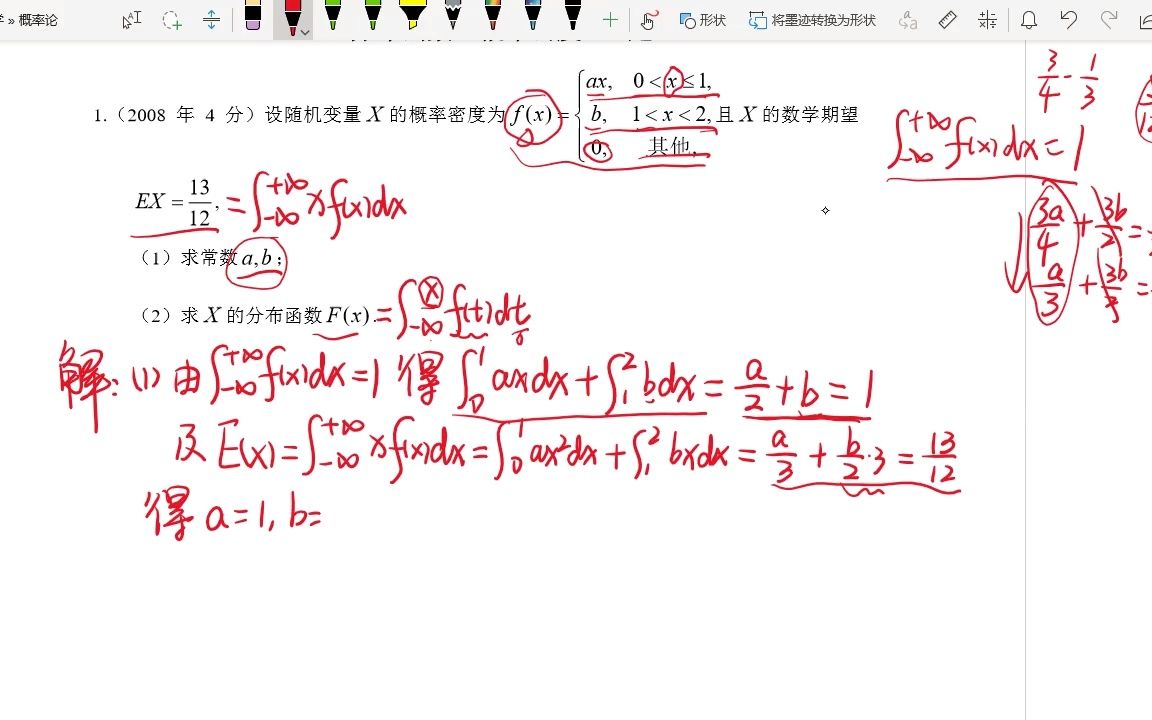 » 概率论
形状
将墨迹转换为形状
1.（2008 年 4 分）设随机变量 X 的概率密度为 f(x) = { ax, 0 < x ≤ 1,
b, 1 < x < 2, 且 X 的数学期望
0, 其他,
EX = 13/12, = ∫_{-∞}^{+∞} x f(x)dx
（1）求常数 a,b；
（2）求 X 的分布函数 F(x). = ∫_{-∞}^{x} f(t)dt
解: (1) 由 ∫_{-∞}^{+∞} f(x)dx = 1 得 ∫_0^1 axdx + ∫_1^2 bdx = a/2 + b = 1
及 E(X) = ∫_{-∞}^{+∞} x f(x)dx = ∫_0^1 ax²dx + ∫_1^2 bxdx = a/3 + b/2 · 3 = 13/12
得 a = 1, b =
3/4 - 1/3
∫_{-∞}^{+∞} f(x)dx = 1
3a/4 + 3b/2 =
a/3 + 3b/2 =